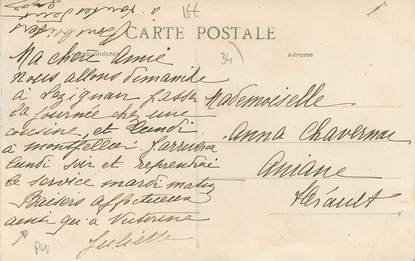 CARTE POSTALE
Correspondance
Ma chère Amie
nous allons dimanche
à Lézignan passer
la journée chez une
cousine, et Lundi
à montpellier. J'arriverai
lundi soir et reprendrai
le service mardi matin
Baisers affectueux
ainsi qu'à Victorine
Juliette
Mademoiselle
Anna Chavernac
Aniane
Hérault
34